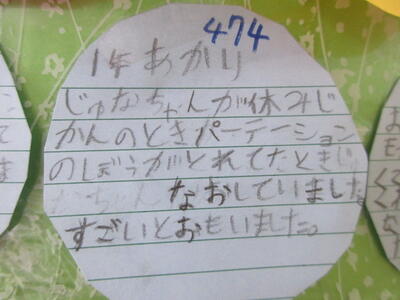 474
1年あかり
じゅなちゃんが休みじ
かんのときパーテーション
のぼうがとれてたときじゅ
なちゃん なおしていました。
すごいとおもいました。